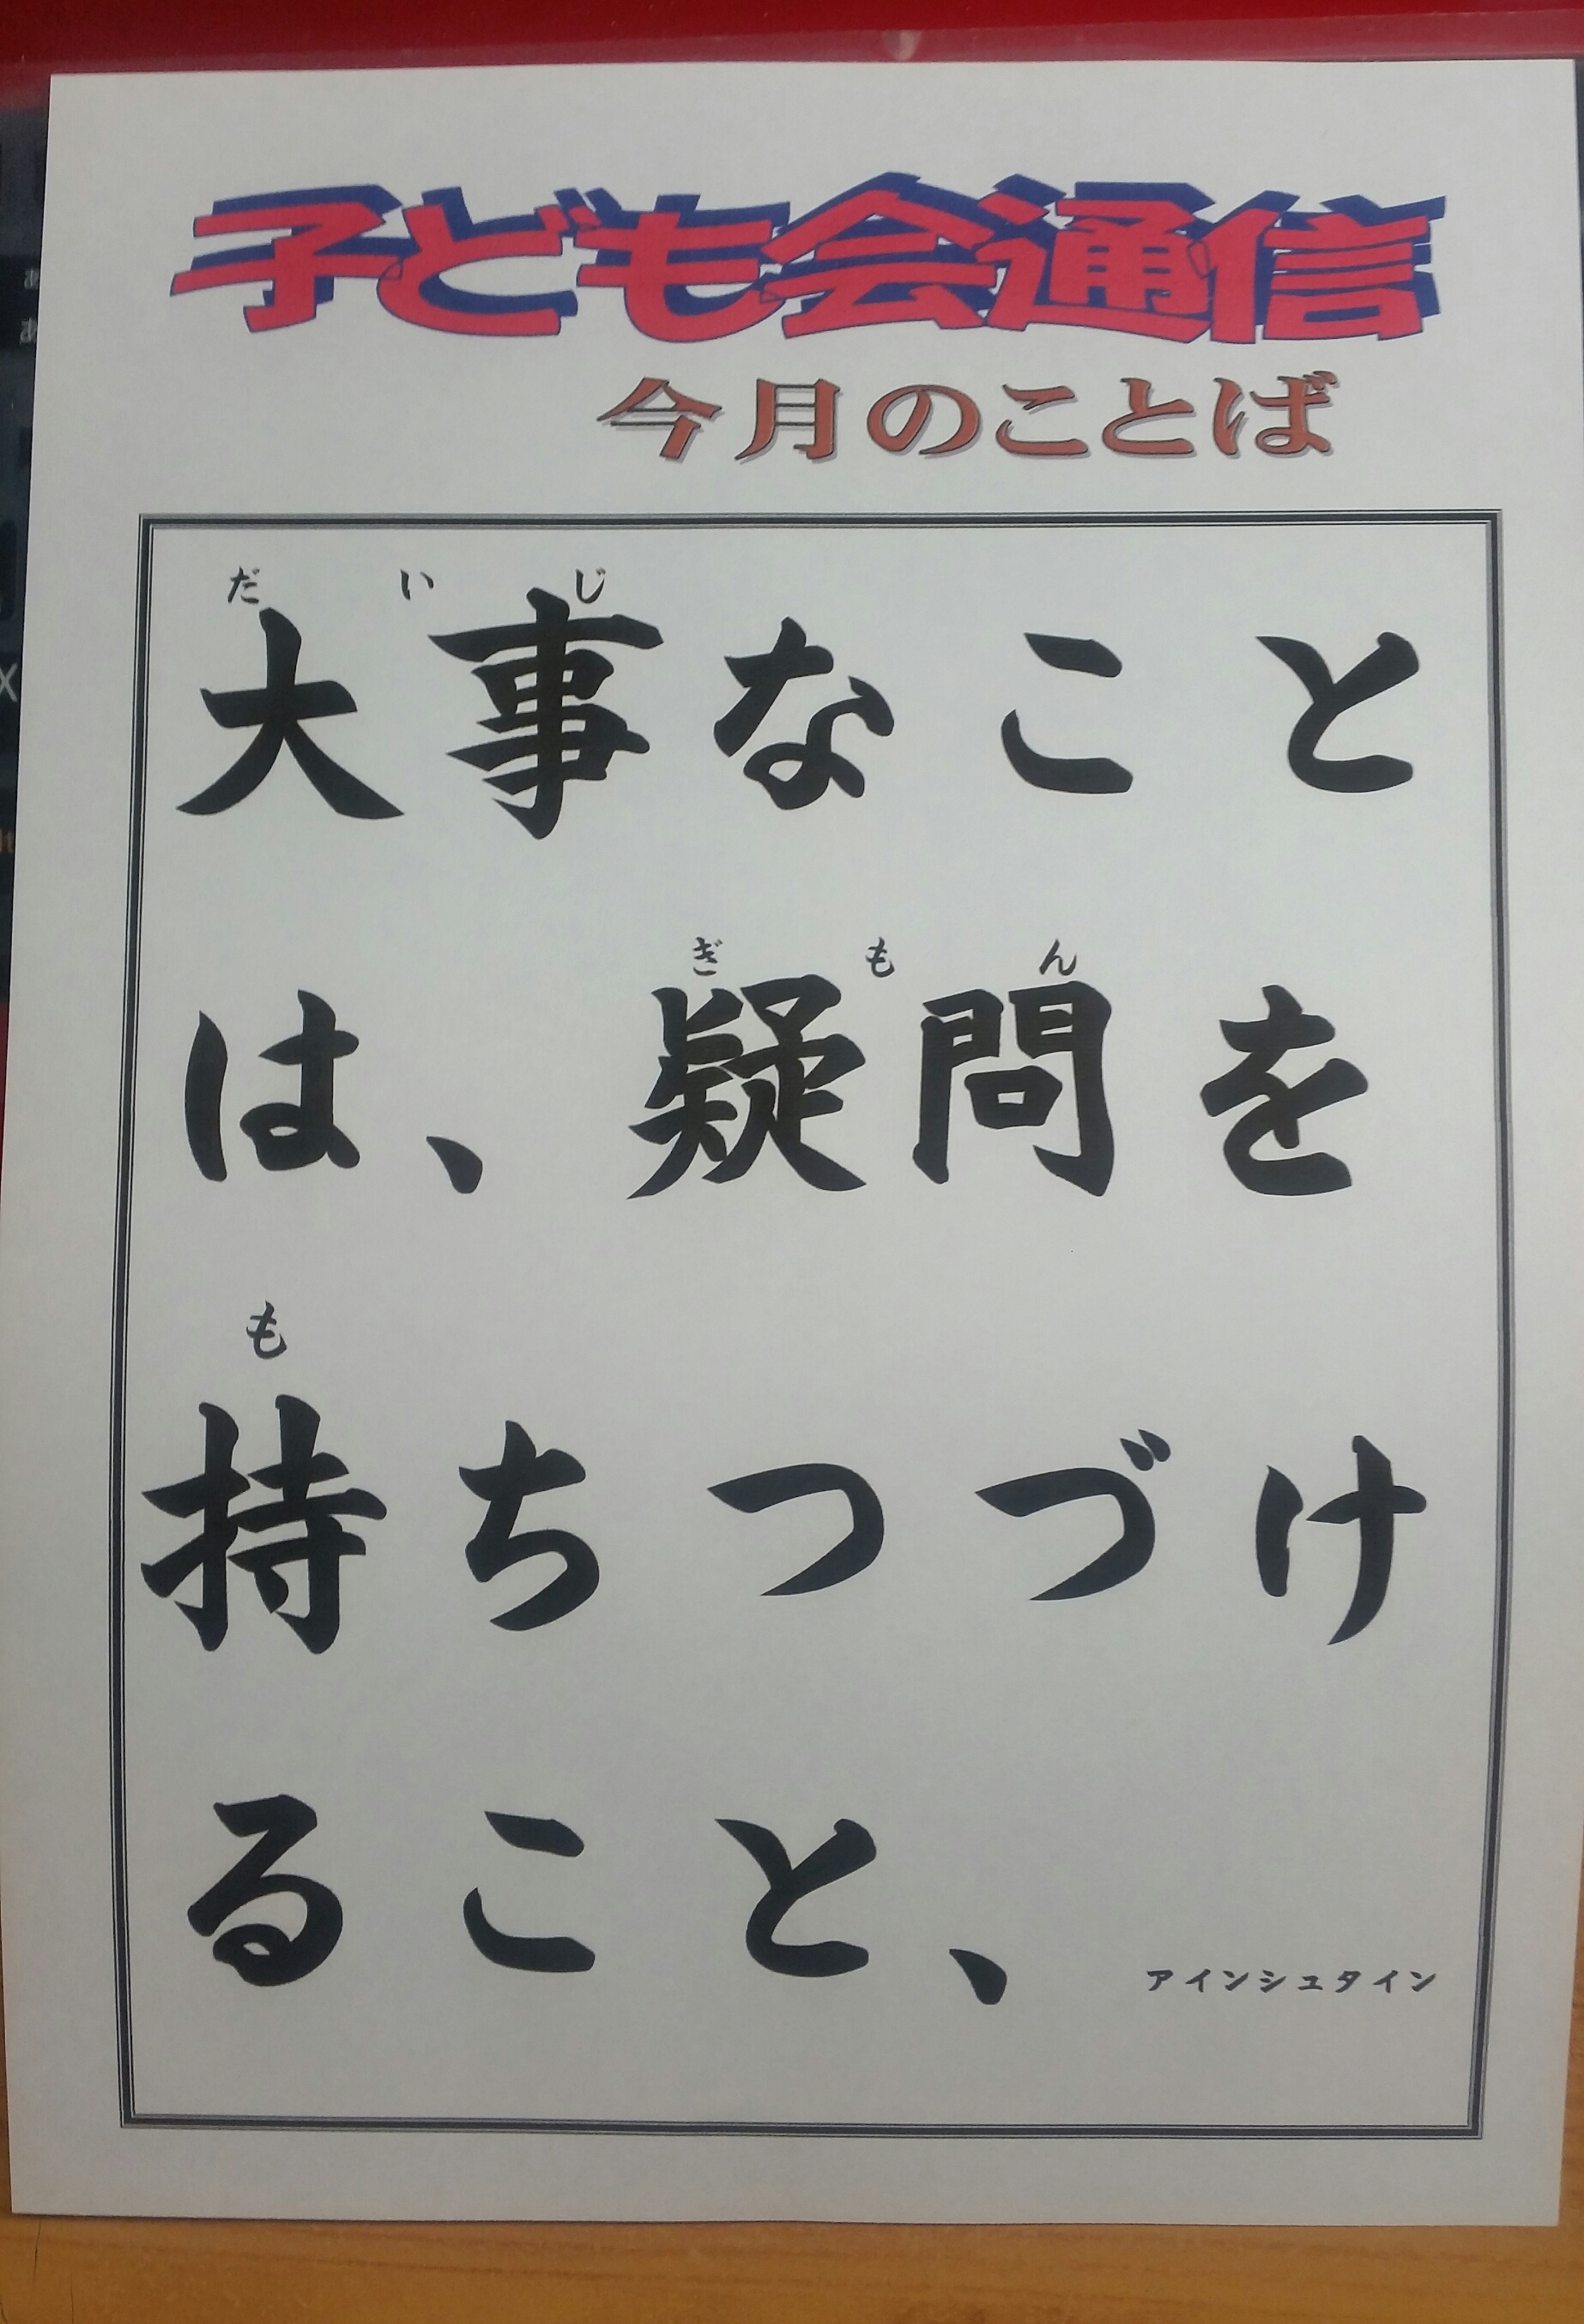 子ども会通信
今月のことば
だいじ
大事なこと
ぎもん
は、疑問を
も
持ちつづけ
ること、
アインシュタイン